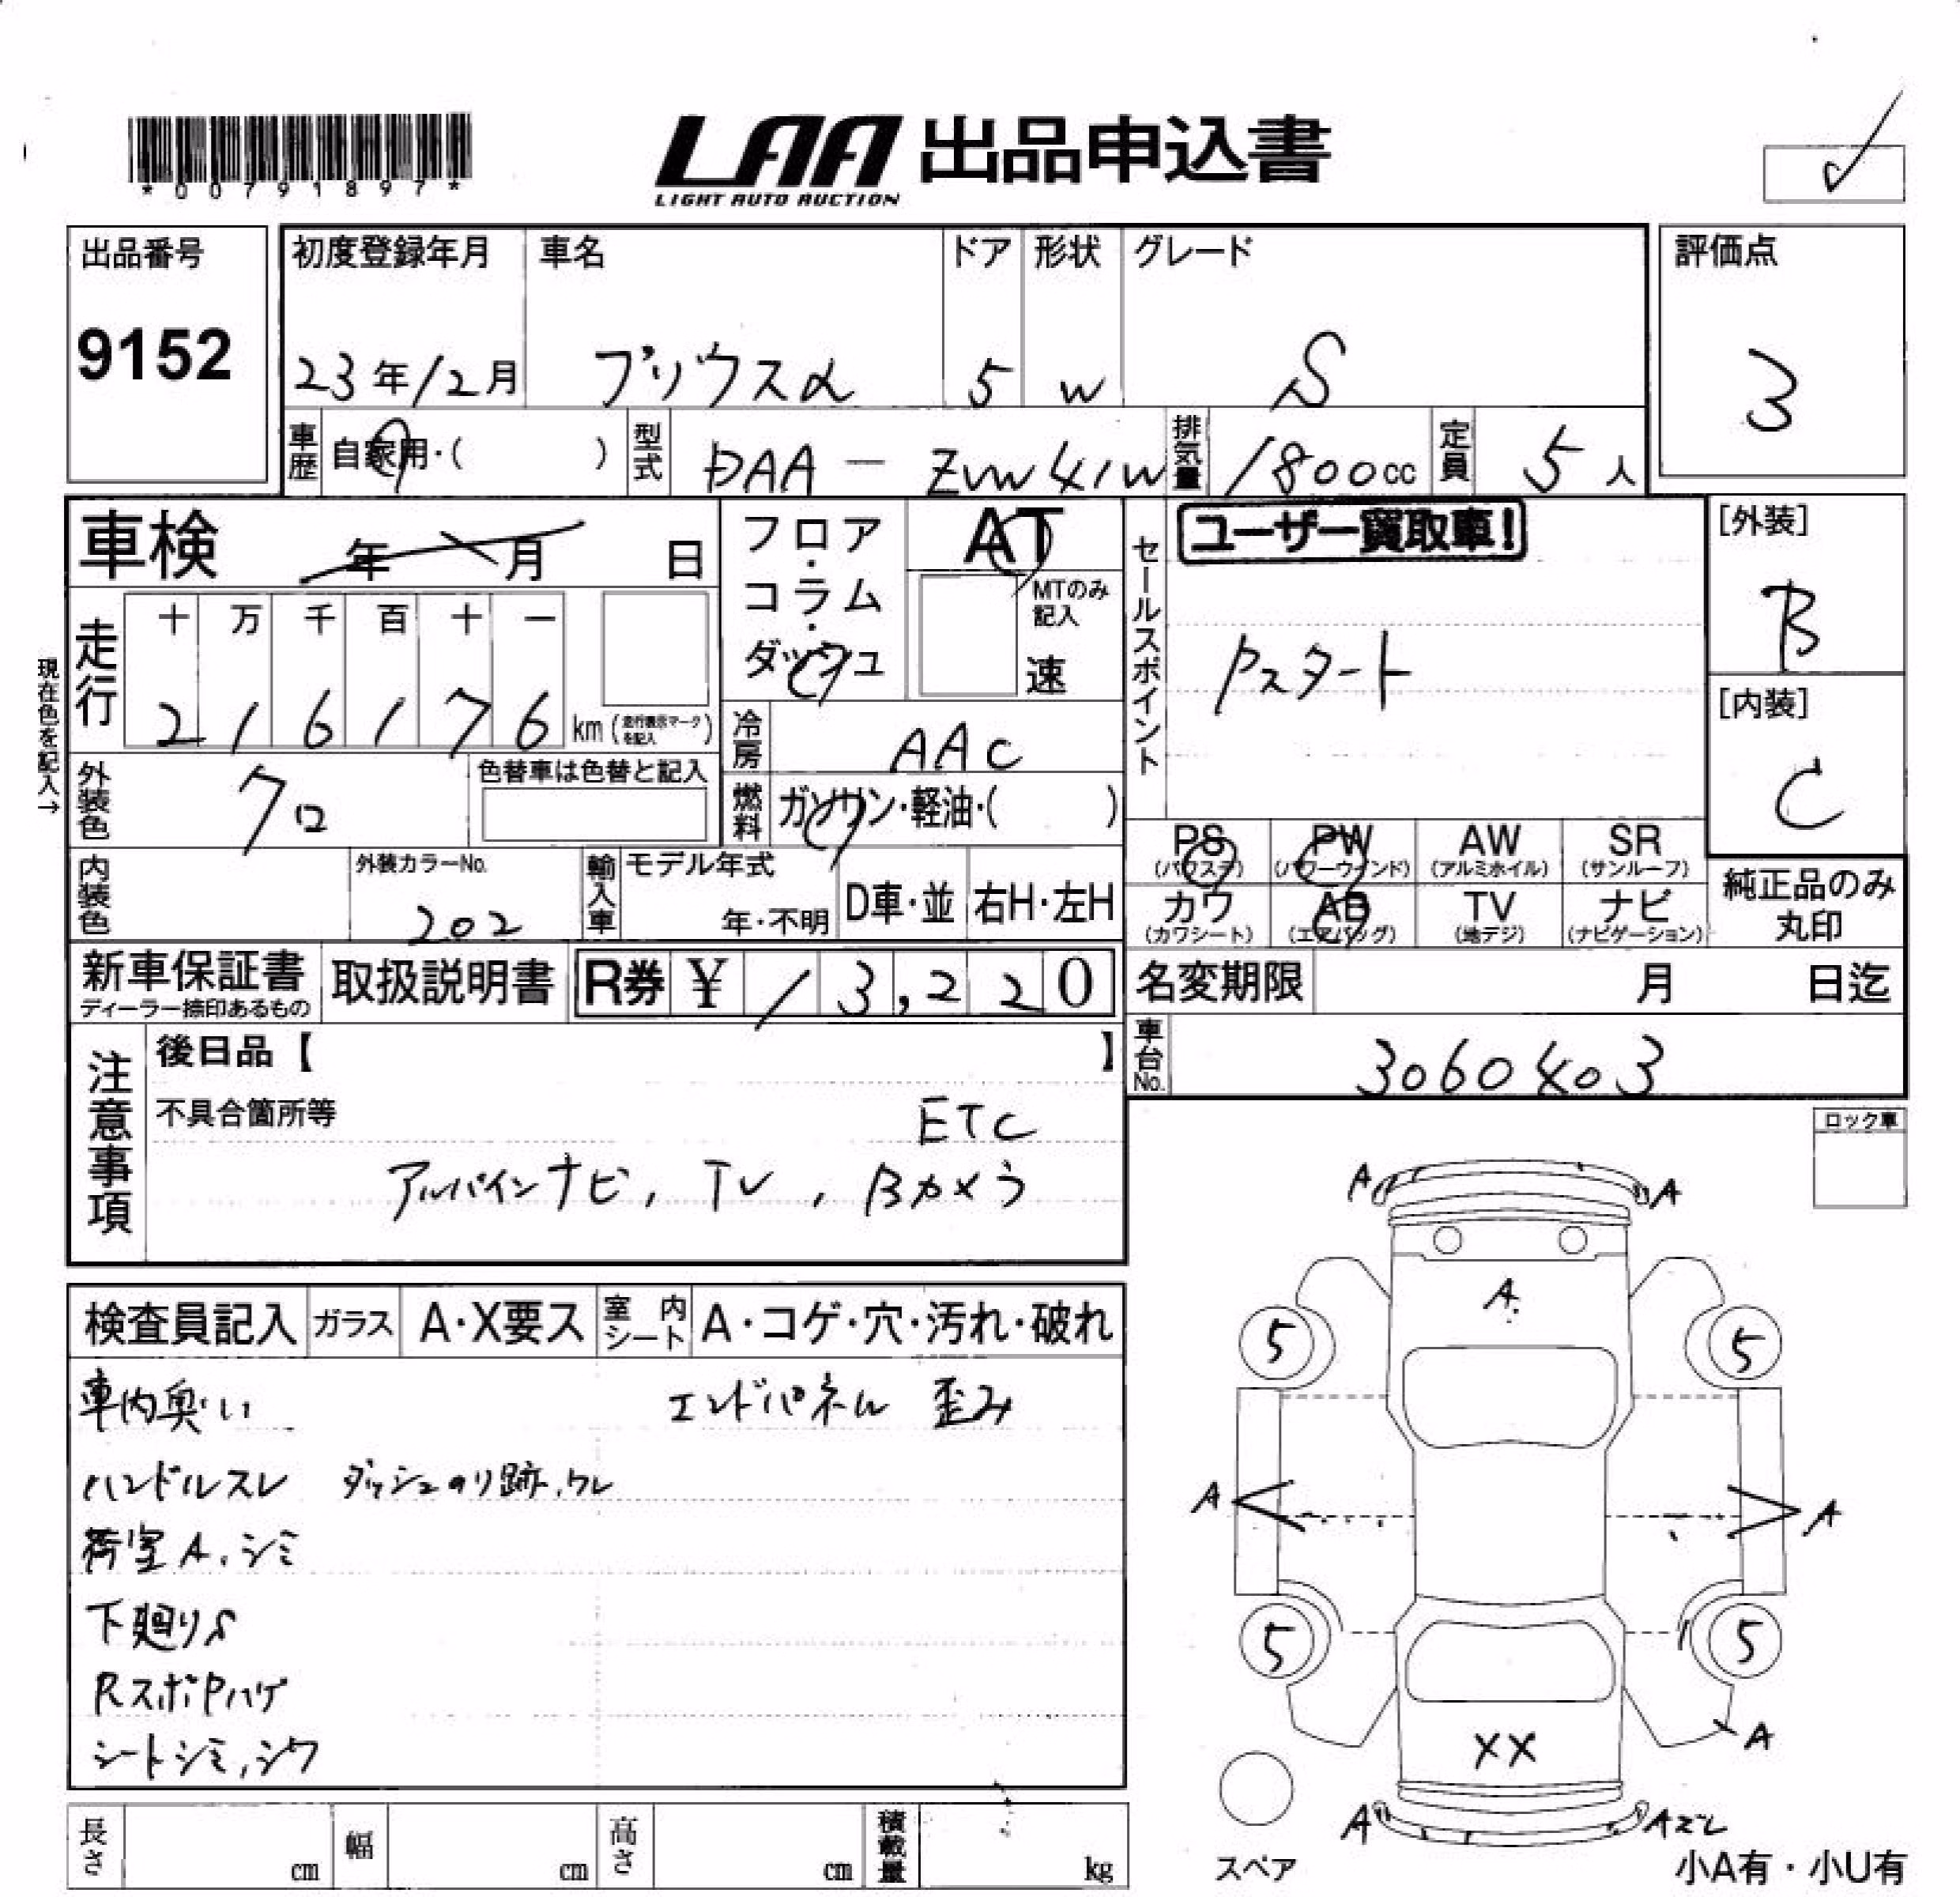 *00791897*
LAA 出品申込書
LIGHT AUTO AUCTION
出品番号
9152
初度登録年月 車名 ドア 形状 グレード
23年12月 プリウスα 5 W S
評価点
3
車歴 自家用・( ) 型式 DAA-ZVW41W 排気量 1800cc 定員 5人
車検 年 月 日
フロア・コラム・ダッシュ
AT
MTのみ記入
速
セールスポイント
ユーザー買取車!
Pスタート
[外装]
B
[内装]
C
現在色を記入→
走行 十 万 千 百 十 一
2 1 6 1 7 6 km(走行表示マークを記入)
冷房 AAC
外装色 クロ 色替車は色替と記入
燃料 ガソリン・軽油・( )
PS (パワステ) PW (パワーウインド) AW (アルミホイル) SR (サンルーフ)
カワ (カワシート) AB (エアバッグ) TV (地デジ) ナビ (ナビゲーション)
純正品のみ丸印
内装色 外装カラーNo. 202 輸入車 モデル年式 年・不明 D車・並 右H・左H
新車保証書 ディーラー捺印あるもの 取扱説明書 R券 ¥ 13,220
名変期限 月 日迄
車台No. 3060403
注意事項
後日品【 】
不具合箇所等 ETC
アルパインナビ, TV, Bカメラ
ロック車
検査員記入 ガラス A・X要ス 室内シート A・コゲ・穴・汚れ・破れ
車内臭い エンドパネル 歪み
ハンドルスレ ダッシュのり跡,ワレ
荷室A,シミ
下廻りS
RスポPハゲ
シートシミ,シワ
A A
A
5 5
A A
5 5
XX A
A Aズレ
スペア
小A有・小U有
長さ cm 幅 cm 高さ cm 積載量 kg